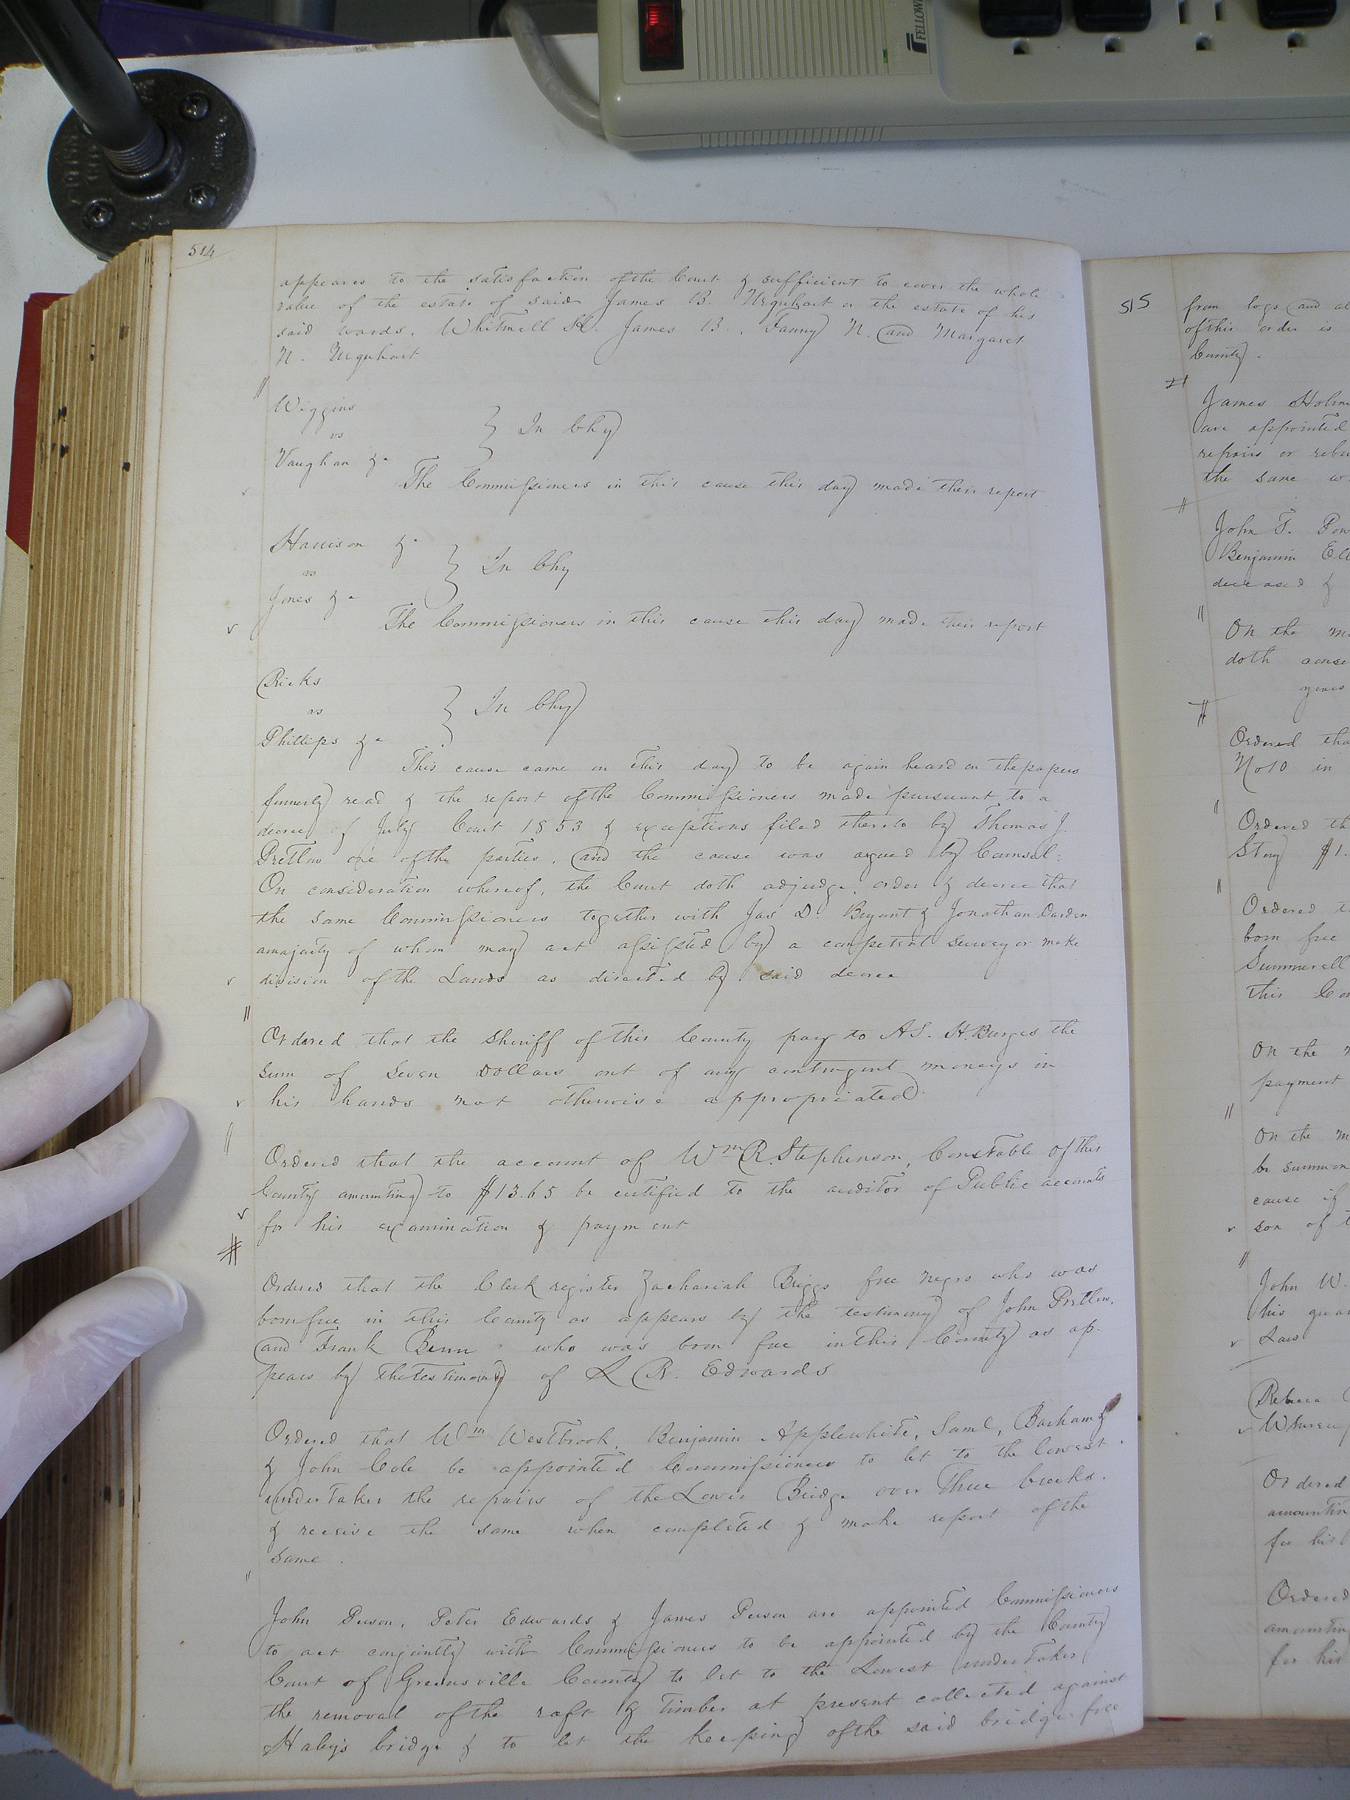 514
appears to the satisfaction of the Court & sufficient to cover the whole
value of the estate of said James B. Urquhart or the estate of his
said wards. Whitmell H. James B., Fanny N. and Margaret
N. Urquhart
Wiggins
vs } In Chy
Vaughan &c
The Commissioners in this cause this day made their report
Harrison &c
vs } In Chy
Jones &c
The Commissioners in this cause this day made their report
Ricks
vs } In Chy
Phillips &c
This cause came on this day to be again heard on the papers
formerly read & the report of the Commissioners made pursuant to a
decree of July Court 1853 & exceptions filed thereto by Thomas J.
Pretlow one of the parties, and the cause was argued by Counsel:
On consideration whereof, the Court doth adjudge, order & decree that
the same Commissioners together with Jas D. Bryant & Jonathan Darden
a majority of whom may act assisted by a competent surveyor make
division of the Lands as directed by said decree
Ordered that the Sheriff of this County pay to A.S. H. Burges the
sum of Seven Dollars out of any contingent moneys in
his hands not otherwise appropriated.
Ordered that the account of Wm R. Stephenson, Constable of this
County amounting to $13.65 be certified to the auditor of Public accounts
for his examination & payment
Ordered that the Clerk register Zachariah Briggs free negro who was
born free in this County as appears by the testimony of John Pretlow,
and Frank Benn who was born free in this County as ap-
pears by the testimony of L R. Edwards
Ordered that Wm Westbrook, Benjamin Applewhite, Saml, Barham
& John Cole be appointed Commissioners to let to the lowest
undertaker the repairs of the Lower Bridge over Three Creeks.
& receive the same when completed & make report of the
same.
John Person, Peter Edwards & James Person are appointed Commissioners
to act conjointly with Commissioners to be appointed by the County
Court of Greensville County to let to the Lowest undertaker
the removal of the raft & timber at present collected against
Haley's bridge & to let the keeping of the said bridge free
515
from logs and
of this order is
County.
James
are appointed
repairs or
the same
John T.
Benjamin
deceased &
On the
doth
years
Ordered
No 10 in
Ordered
Story $1.
Ordered
born free
Summerell
this
On the
payment
On the
be
cause if
son of
John W.
his
Law
Rebecca

Ordered
amounting
for his
Ordered
amounting
for his
FELLOWES